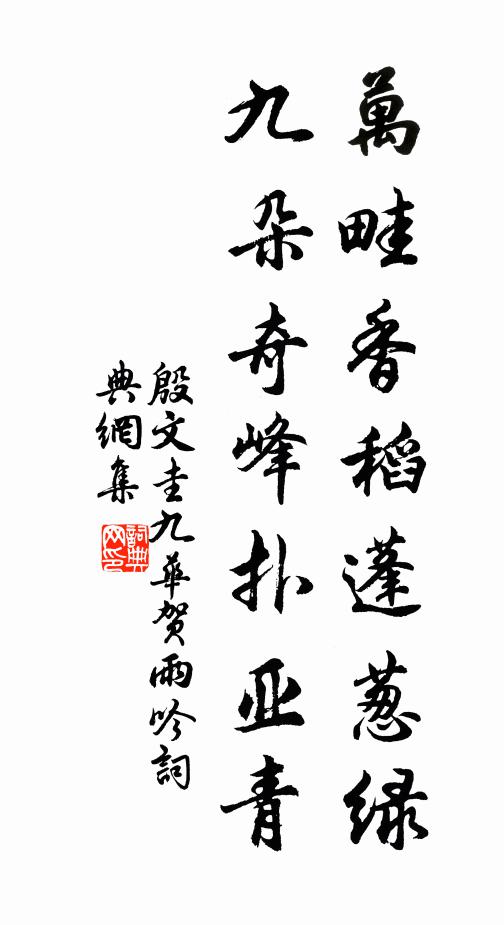 萬畦香稻蓬葱绿
九朵奇峰扑亚青
殷文圭九華贺雨吟詞
典網集
詞典网印